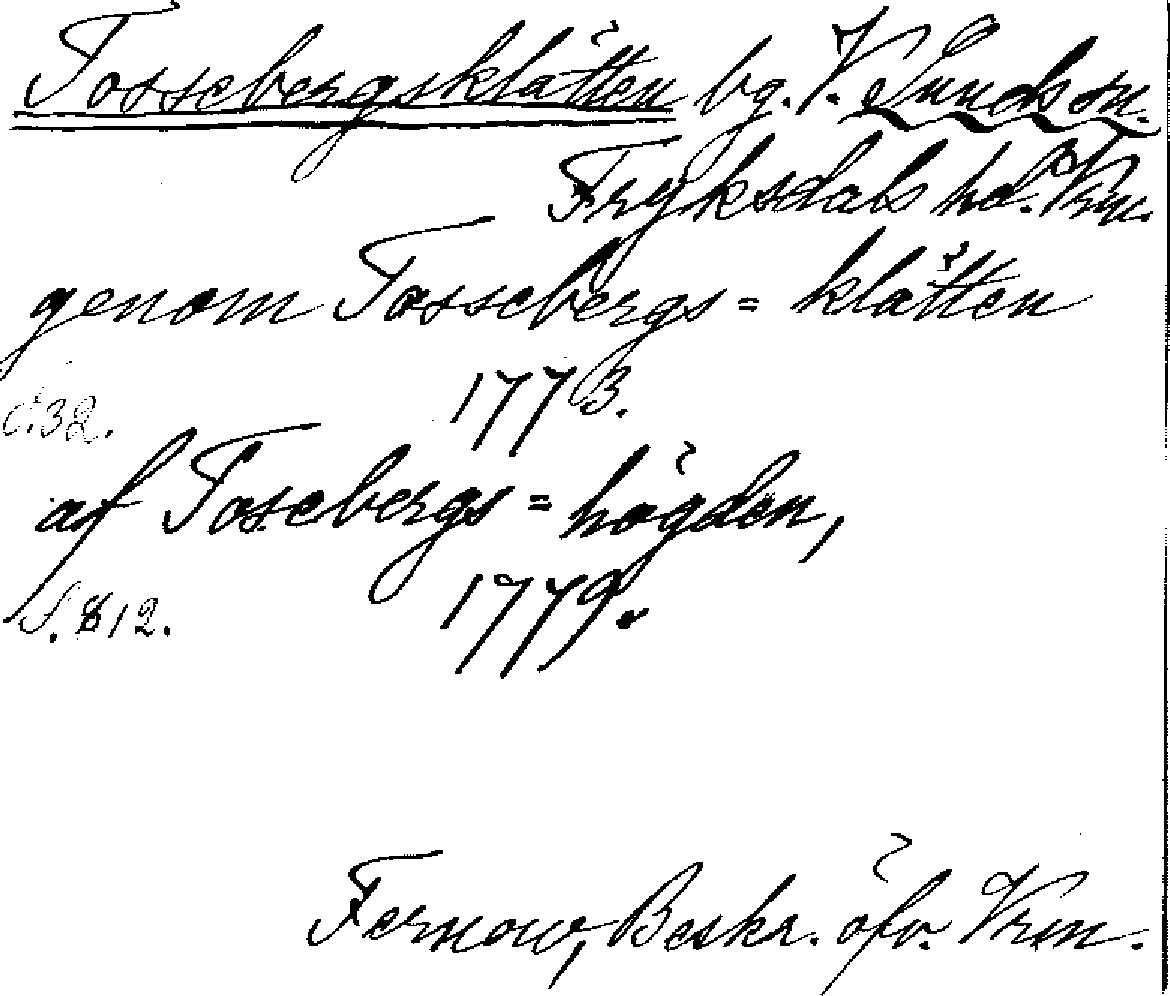 Tossebergsklätten bg. V. Sunds sn.
Fryksdals hd. Vrm.
genom Tossebergs = klätten
1773.
s. 32.
af Tosebergs = högden,
1779.
S. 812.
Fernow, Beskr. öfv. Vrm.